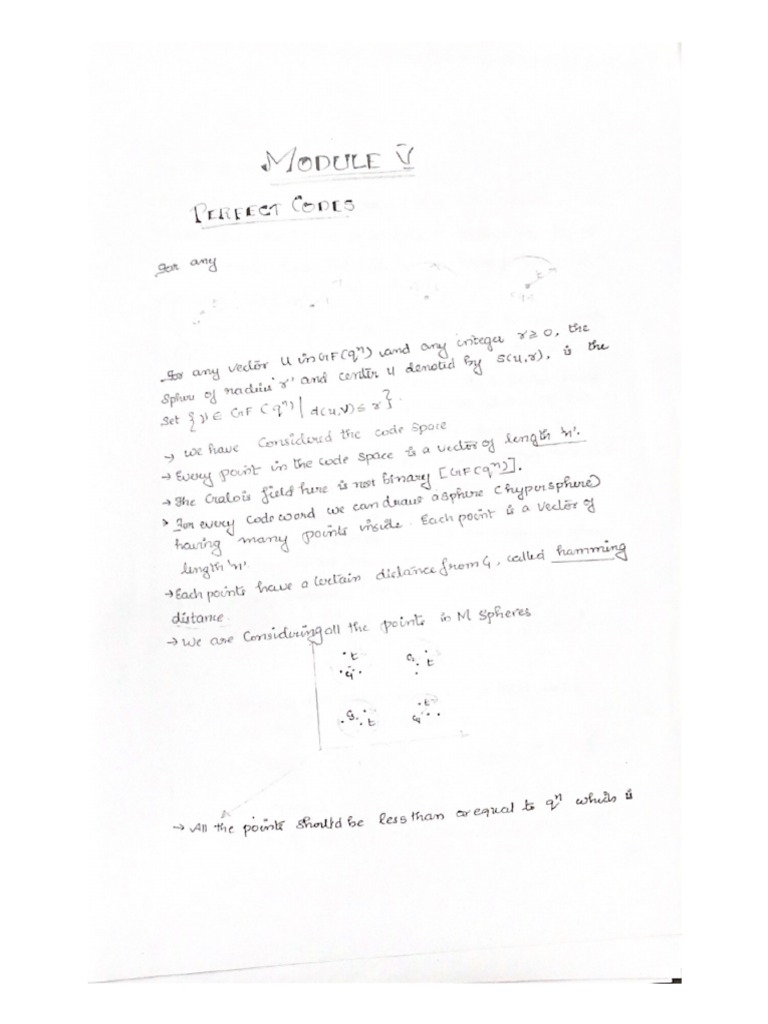 MODULE V
PERFECT CODES
for any
For any vector u in GF(qⁿ) and any integer r ≥ 0, the
sphere of radius 'r' and center u denoted by S(u,r), is the
set {v ∈ GF(qⁿ) | d(u,v) ≤ r}.
→ we have Considered the code space
→ Every point in the code space is a vector of length 'n'.
→ The Galois field here is not binary [GF(qⁿ)].
For every codeword we can draw a sphere (hypersphere)
having many points inside. Each point is a vector of
length 'n'.
→ Each points have a certain distance from C₁, called hamming
distance.
→ We are Considering all the points in M spheres
t
C₁
t
C₂
t
C₃
t
C₄
→ All the points should be less than or equal to qⁿ which is